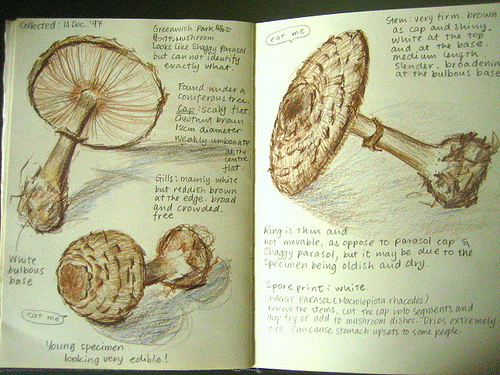 Collected: 14 Dec. '97
Greenwich Park
Mushroom
Looks like Shaggy Parasol
but can not identify
exactly what.
Found under a
coniferous tree.
Cap: scaly flat
Chestnut brown
12cm diameter
weakly umbonate
at the
centre
flat.
Gills: mainly white
but reddish brown
at the edge. broad
and crowded.
free
White
bulbous
base
eat me
Young specimen
looking very edible!
eat me
Stem: very firm. brown
as cap and shiny.
White at the top
and at the base.
medium length
Slender. broadening
at the bulbous base
Ring is thin and
not movable, as oppose to parasol cap &
Shaggy parasol, but it may be due to the
specimen being oldish and dry.
Spore print: white.
SHAGGY PARASOL (Macrolepiota rhacodes)
Remove the stems, cut the cap into segments and
deep fry or add to mushroom dishes. Dries extremely
well. Can cause stomach upsets to some people.